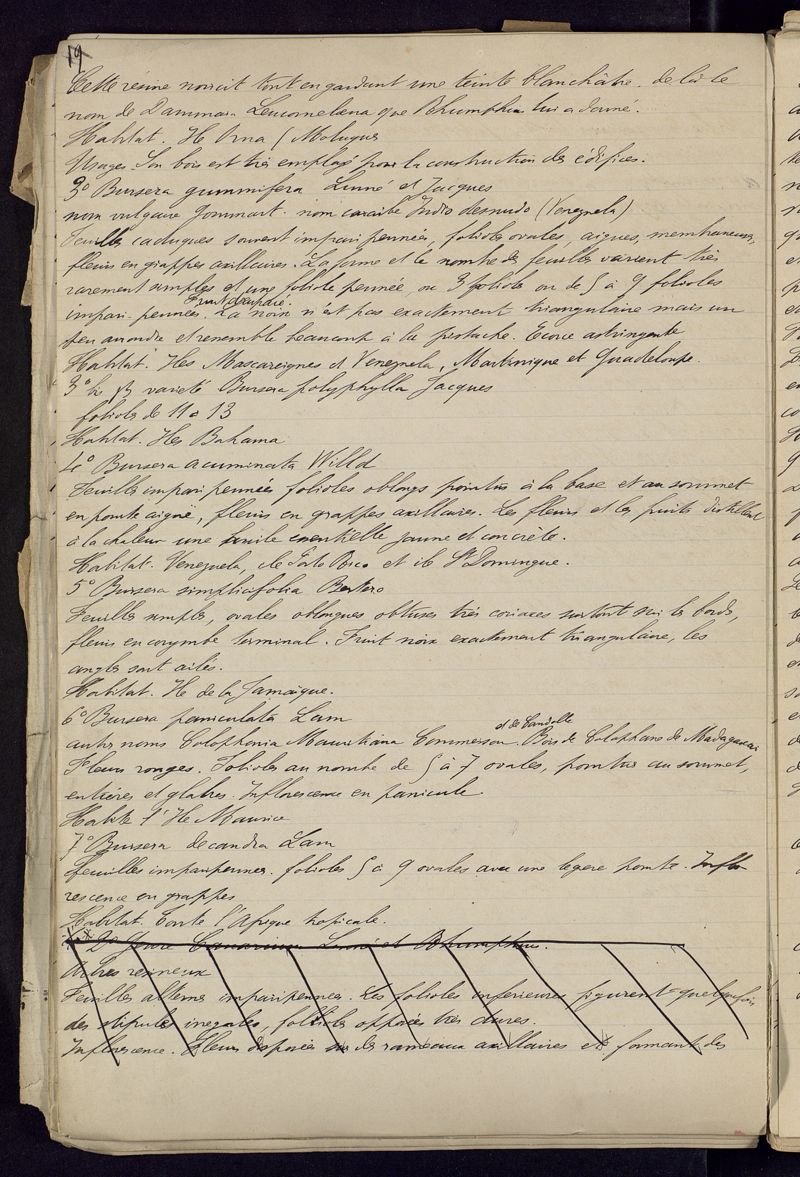 19
Cette résine noircit tout en gardant une teinte blanchâtre. de là le
nom de Dammara Leucomelana que Rhumphius lui a donné.
Habitat. Ile Oma (Moluques
Usages. Son bois est très employé pour la construction des édifices.
3° Bursera gummifera Linné et Jacques
nom vulgaire Gommart. nom caraibe Indio desnudo (Venezuela)
Feuilles caduques souvent impari pennées, folioles ovales, aigues, membraneuses,
fleurs en grappes axillaires. La forme et le nombre des feuilles varient très
rarement simples et une foliole pennée ou 3 folioles ou de 5 à 9 folioles
impari-pennées. Fruit drupacé. La noix n'est pas exactement triangulaire mais un
peu arrondie et ressemble beaucoup à la pistache. Ecorce astringente
Habitat. Iles Mascareignes et Venezuela, Martinique et Guadeloupe.
3° bis β varieté Bursera polyphylla Jacques
folioles de 11 à 13
Habitat. Iles Bahama
4° Bursera acuminata Willd
Feuilles imparipennées folioles oblongs pointus à la base et au sommet
en pointe aigüe, fleurs en grappes axillaires. Les fleurs et les fruits distillent
à la chaleur une huile essentielle jaune et concrète.
Habitat. Venezuela, ile Porto Rico et ile St Domingue.
5° Bursera simplicifolia Bertero
Feuilles simples, ovales oblongues obtuses très coriaces surtout sur les bords,
fleurs en corymbe terminal. Fruit noix exactement triangulaire, les
angles sont ailés.
Habitat. Ile de la Jamaïque.
6° Bursera paniculata Lam
autres noms Colophonia Mauritiana Commerson et de Candolle. Bois de Colophane de Madagascar
Fleurs rouges. Folioles au nombre de 5 à 7 ovales, pointus au sommet,
entières et glabres. Inflorescence en panicule
Habite l'Ile Maurice
7° Bursera decandra Lam
feuilles imparipennes. folioles 5 à 9 ovales avec une légère pointe. Inflo
rescence en grappes
Habitat. Toute l'Afrique tropicale.
2° Genre Canarium Linné et Rhumphius.
Arbres résineux
Feuilles alternes imparipennées. Les folioles inférieures figurent quelquefois
des stipules inegales, folioles opposées très dures.
Inflorescence. Fleurs disposées sur des rameaux axillaires et formant des